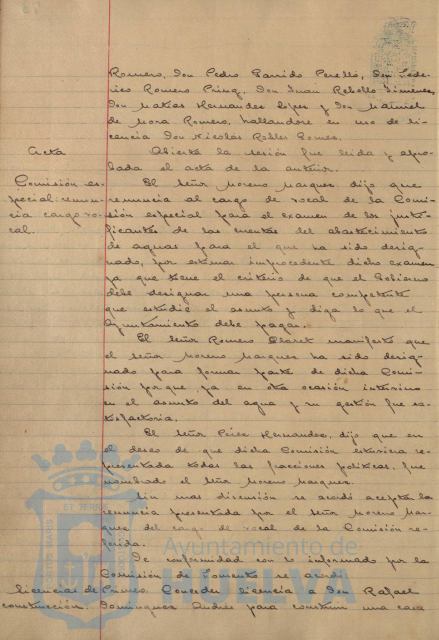 Romero, Don Pedro Garrido Perelló, Don Fede-
rico Romero Prinz, Don Juan Rebollo Jiménez,
Don Matías Hernandez López y Don Manuel
de Mora Romero, hallandose en uso de li-
cencia Don Nicolás Robles Gomez.
Acta
Abierta la sesión fue leida y apro-
bada el acta de la anterior.
Comisión es-
pecial: renun-
cia cargo vo-
cal.
El Señor Moreno Marquez, dijo que
renuncia al cargo de vocal de la Comi-
sión especial para el examen de los justi-
ficantes de las cuentas del abastecimiento
de aguas para el que ha sido desig-
nado, por estimar improcedente dicho examen
ya que tiene el criterio de que el Gobierno
debe designar una persona competente
que estudie el asunto y diga lo que el
Ayuntamiento debe pagar.
El Señor Romero Claret manifestó que
el Señor Moreno Marquez ha sido desig-
nado para formar parte de dicha Comi-
sión porque, ya en otra ocasión intervino
en el asunto del agua y su gestión fue sa-
tisfactoria.
El Señor Pérez Hernandez, dijo que en
el deseo de que dicha Comisión estuviera re-
presentada todas las fracciones politicas, fue
nombrado el Señor Moreno Marquez.
Sin mas discusión se acordó aceptar la
renuncia presentada por el Señor Moreno Mar-
quez del cargo de vocal de la Comisión re-
ferida.
De conformidad con lo informado por la
Comisión de Fomento se acordó
licencias de
construcción.
Primero. Conceder licencia a Don Rafael
Dominguez Andrés para construir una casa
Ayuntamiento de
HUELVA